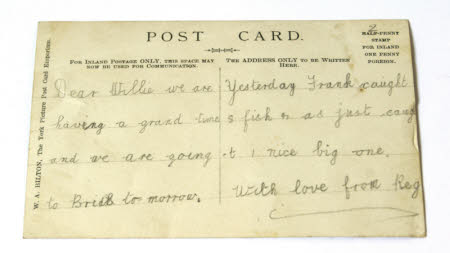 POST CARD.
2
HALF-PENNY
STAMP
FOR INLAND
ONE PENNY
FOREIGN.
FOR INLAND POSTAGE ONLY, THIS SPACE MAY
NOW BE USED FOR COMMUNICATION.
THE ADDRESS ONLY TO BE WRITTEN
HERE.
W. A. HILTON, The York Picture Post Card Emporium.
Dear Willie we are
having a grand time
and we are going
to to morrow.
Yesterday Frank caught
s fish n as just caug
t 1 nice big one.
With love from Reg